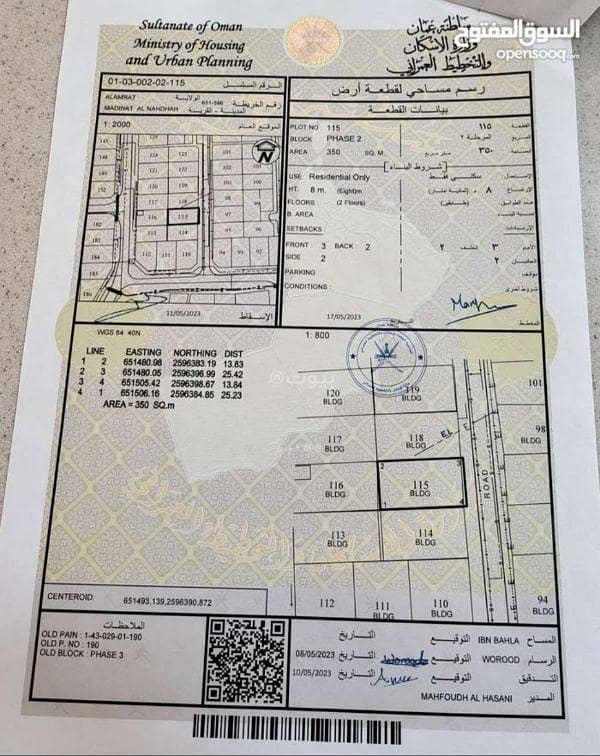 السوق المفتوح
opensooq.com
Sultanate of Oman
Ministry of Housing
and Urban Planning
سلطنة عمان
وزارة الإسكان
والتخطيط العمراني
01-03-002-02-115
الرقم المسلسل
ALAMRAT
الولاية
MADINAT AL NAHDHAH
المدينة - القرية
651-596
رقم الخريطة
رسم مساحي لقطعة أرض
بيانات القطعة
1: 2000
الموقع العام
N
PLOT NO 115
القطعة ١١٥
BLOCK PHASE 2
المربع المرحلة ٢
AREA 350 SQ. M
٣٥٠ متر مربع
[شروط البناء]
USE: Residential Only
الاستعمال سكني فقط
HT. 8 m. (Eight)m
الارتفاع ٨ (ثمانية امتار)
FLOORS (2 Floors)
عدد الطوابق (طابقين)
B. AREA
مساحة البناء
SETBACKS
الارتدادات
FRONT 3 BACK 2
الأمام ٣ الخلف ٢
SIDE 2
الجانبان ٢
PARKING
مواقف
CONDITIONS :
شروط اخرى
11/05/2023
الإسقاط
17/05/2023
المخطط
WGS 84 40N
1: 800
LINE EASTING NORTHING DIST
1 2 651480.98 2596383.19 13.83
2 3 651480.05 2596396.99 25.42
3 4 651505.42 2596398.67 13.84
4 1 651506.16 2596384.85 25.23
AREA = 350 SQ.m
بيوت
120
BLDG
119
BLDG
101
117
BLDG
118
BLDG
98
BLDG
EL
ROAD
116
BLDG
2
3
115
BLDG
1
4
113
BLDG
114
BLDG
112
111
BLDG
110
BLDG
94
BLDG
CENTEROID: 651493.139,2596390.872
الملاحظات
OLD PAIN : 1-43-029-01-190
OLD P. NO : 190
OLD BLOCK : PHASE 3
المساح IBN BAHLA التوقيع التاريخ
الرسام WOROOD التوقيع التاريخ 08/05/2023
التدقيق التوقيع التاريخ 10/05/2023
المدير MAHFOUDH AL HASANI